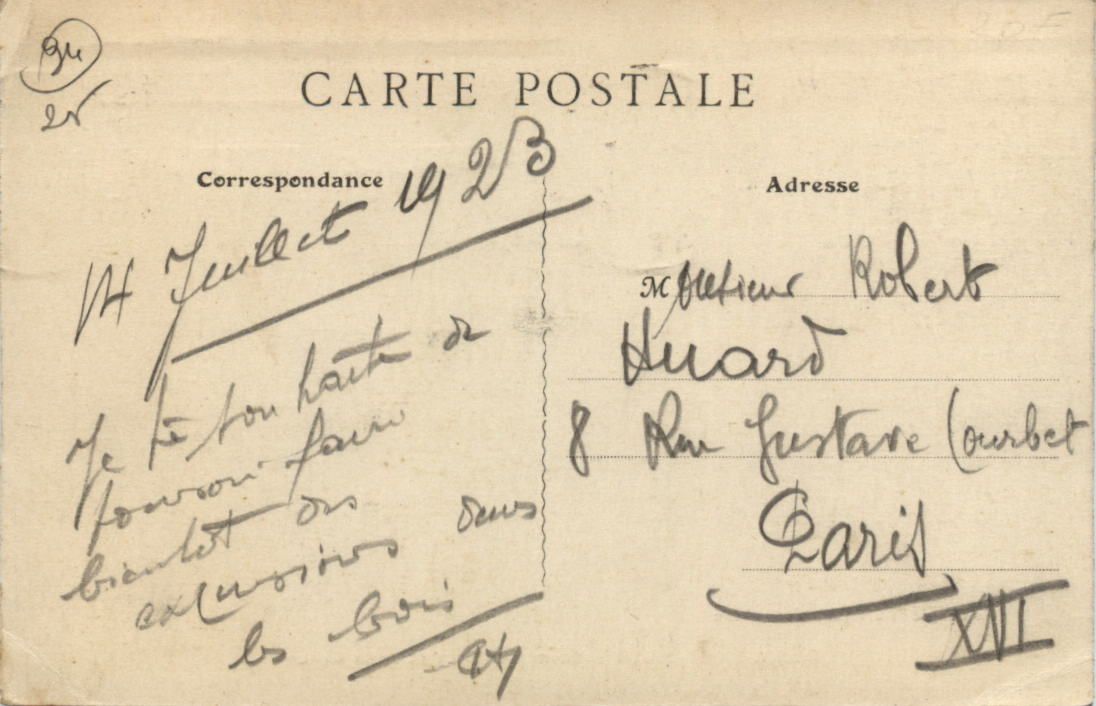 94
25
CARTE POSTALE
Correspondance
14 Juillet 1923
Je hate de
faire
bientôt des
excursions dans
les bois
Adresse
Monsieur Robert
Huard
8 Rue Gustave Courbet
Paris
XVI